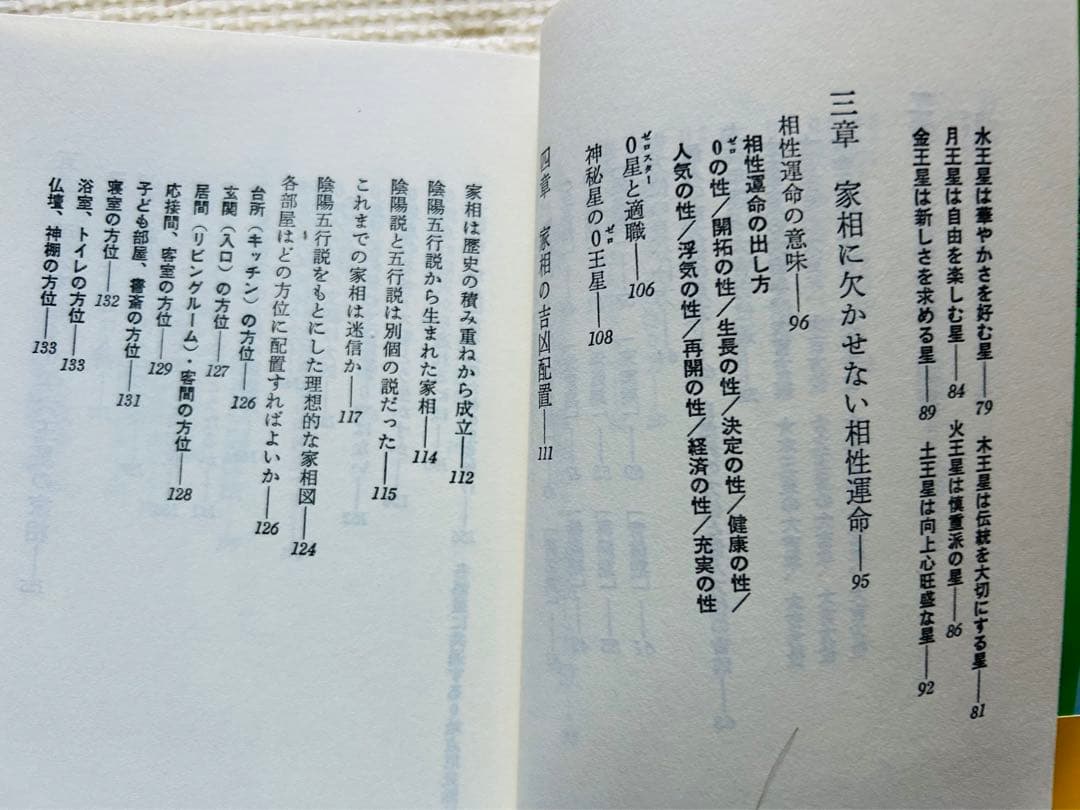 水王星は華やかさを好む星――79 木王星は伝統を大切にする星――81
月王星は自由を楽しむ星――84 火王星は慎重派の星――86
金王星は新しさを求める星――89 土王星は向上心旺盛な星――92
三章 家相に欠かせない相性運命――95
相性運命の意味――96
相性運命の出し方
0の性／開拓の性／生長の性／決定の性／健康の性／
ゼロ
人気の性／浮気の性／再開の性／経済の性／充実の性
0星と適職――106
ゼロスター
神秘星の0王星――108
ゼロ
四章 家相の吉凶配置――111
家相は歴史の積み重ねから成立――112
陰陽五行説から生まれた家相――114
陰陽説と五行説は別個の説だった――115
これまでの家相は迷信か――117
陰陽五行説をもとにした理想的な家相図――124
各部屋はどの方位に配置すればよいか――126
台所（キッチン）の方位――126
玄関（入口）の方位――127
居間（リビングルーム）・客間の方位――128
応接間、客室の方位――129
子ども部屋、書斎の方位――131
寝室の方位――132
浴室、トイレの方位――133
仏壇、神棚の方位――133